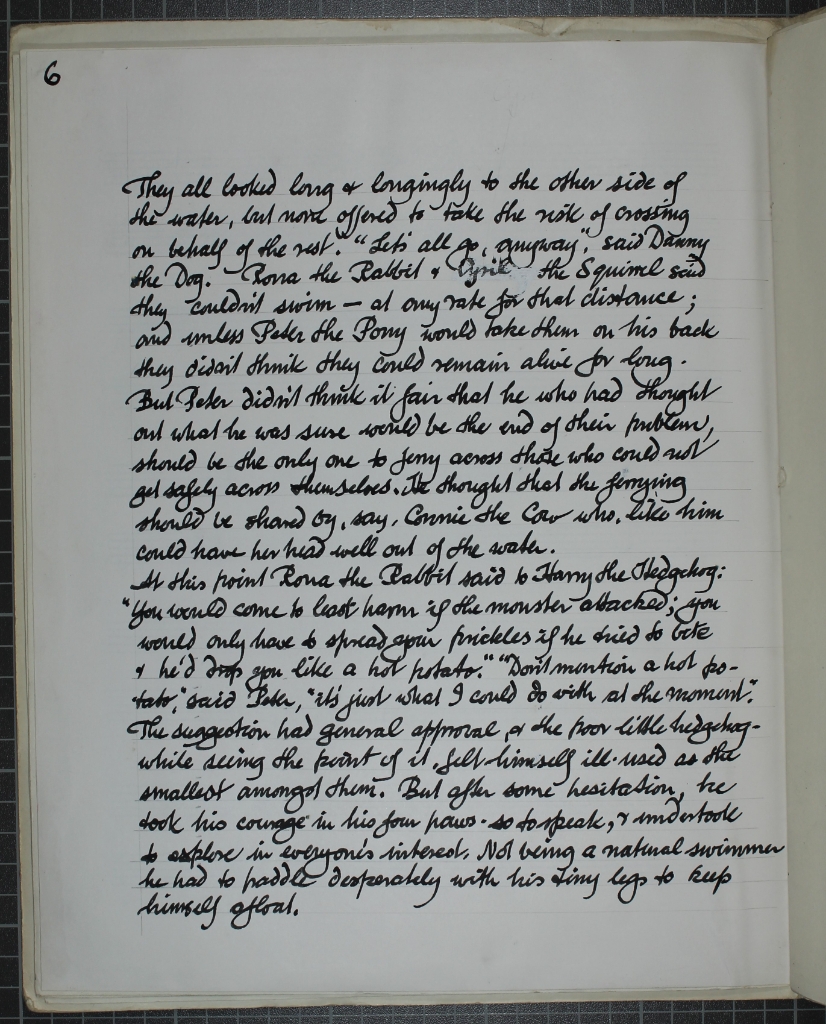 6
They all looked long & longingly to the other side of
the water, but none offered to take the risk of crossing
on behalf of the rest. "Let's all go, anyway", said Danny
the Dog. Rona the Rabbit & April the Squirrel said
they couldn't swim — at any rate for that distance;
and unless Peter the Pony would take them on his back
they didn't think they could remain alive for long.
But Peter didn't think it fair that he who had thought
out what he was sure would be the end of their problem,
should be the only one to ferry across those who could not
get safely across themselves. He thought that the ferrying
should be shared by, say, Connie the Cow who, like him
could have her head well out of the water.
At this point Rona the Rabbit said to Harry the Hedgehog:
"You would come to least harm if the monster attacked; you
would only have to spread your prickles if he tried to bite
& he'd drop you like a hot potato." "Don't mention a hot po-
tato," said Peter, "it's just what I could do with at the moment".
The suggestion had general approval, & the poor little hedgehog-
while seeing the point of it, felt himself ill-used as the
smallest amongst them. But after some hesitation, he
took his courage in his four paws - so to speak, & undertook
to explore in everyone's interest. Not being a natural swimmer
he had to paddle desperately with his tiny legs to keep
himself afloat.